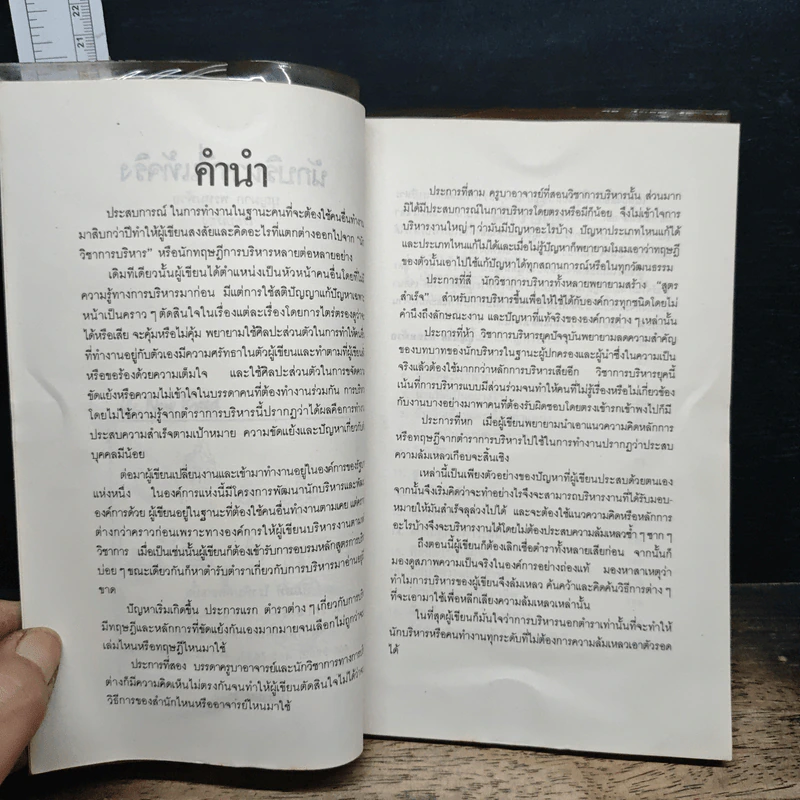 22
21
คำนำ
ประสบการณ์ ในการทำงานในฐานะคนที่จะต้องใช้คนอื่นทำงาน
มาสิบกว่าปีทำให้ผู้เขียนสงสัยและคิดอะไรที่แตกต่างออกไปจาก
วิชาการบริหาร” หรือนักทฤษฎีการบริหารหลายต่อหลายอย่าง
เดิมทีเดียวนั้นผู้เขียนได้ตำแหน่งเป็นหัวหน้าคนอื่นโดยที่ไม่มี
ความรู้ทางการบริหารมาก่อน มีแต่การใช้สติปัญญาแก้ปัญหาเฉพาะ
หน้าเป็นคราว ๆ ตัดสินใจในเรื่องแต่ละเรื่องโดยการไตร่ตรองดูว่า
ได้หรือเสีย จะคุ้มหรือไม่คุ้ม พยายามใช้ศิลปะส่วนตัวในการทำให้คน
ที่ทำงานอยู่กับตัวเองมีความศรัทธาในตัวผู้เขียนและทำตามที่ผู้เขียน
หรือขอร้องด้วยความเต็มใจ และใช้ศิลปะส่วนตัวในการขจัดความ
ขัดแย้งหรือความไม่เข้าใจในบรรดาคนที่ต้องทำงานร่วมกัน การบริหาร
โดยไม่ใช้ความรู้จากตำราการบริหารนี้ปรากฏว่าได้ผลคือการทำงาน
ประสบความสำเร็จตามเป้าหมาย ความขัดแย้งและปัญหาเกี่ยวกับ
บุคคลมีน้อย
ต่อมาผู้เขียนเปลี่ยนงานและเข้ามาทำงานอยู่ในองค์การของรัฐ
แห่งหนึ่ง ในองค์การแห่งนี้มีโครงการพัฒนานักบริหารและพัฒนา
องค์การด้วย ผู้เขียนอยู่ในฐานะที่ต้องใช้คนอื่นทำงานตามเคย แต่คราวนี้
ต่างกว่าคราวก่อนเพราะทางองค์การให้ผู้เขียนบริหารงานตามหลัก
วิชาการ เมื่อเป็นเช่นนั้นผู้เขียนก็ต้องเข้ารับการอบรมหลักสูตรการบริหาร
บ่อย ๆ ขณะเดียวกันก็หาตำรับตำราเกี่ยวกับการบริหารมาอ่านอยู่มิ
ขาด
ปัญหาเริ่มเกิดขึ้น ประการแรก ตำราต่าง ๆ เกี่ยวกับการบริหาร
มีทฤษฎีและหลักการที่ขัดแย้งกันเองมากมายจนเลือกไม่ถูกว่าจะ
เล่มไหนหรือทฤษฎีไหนมาใช้
ประการที่สอง บรรดาครูบาอาจารย์และนักวิชาการทางการบริหาร
ต่างก็มีความคิดเห็นไม่ตรงกันจนทำให้ผู้เขียนตัดสินใจไม่ได้ว่าจะ
วิธีการของสำนักไหนหรืออาจารย์ไหนมาใช้
ประการที่สาม ครูบาอาจารย์ที่สอนวิชาการบริหารนั้น ส่วนมาก
มิได้มีประสบการณ์ในการบริหารโดยตรงหรือมีก็น้อย จึงไม่เข้าใจการ
บริหารงานใหญ่ ๆ ว่ามันมีปัญหาอะไรบ้าง ปัญหาประเภทไหนแก้ได้
และประเภทไหนแก้ไม่ได้และเมื่อไม่รู้ปัญหาก็พยายามโมเมเอาว่าทฤษฎี
ของตัวนั้นเอาไปใช้แก้ปัญหาได้ทุกสถานการณ์หรือในทุกวัฒนธรรม
ประการที่สี่ นักวิชาการบริหารทั้งหลายพยายามสร้าง “สูตร
สำเร็จ” สำหรับการบริหารขึ้นเพื่อให้ใช้ได้กับองค์การทุกชนิดโดยไม่
คำนึงถึงลักษณะงาน และปัญหาที่แท้จริงขององค์การต่าง ๆ เหล่านั้น
ประการที่ห้า วิชาการบริหารยุคปัจจุบันพยายามลดความสำคัญ
ของบทบาทของนักบริหารในฐานะผู้ปกครองและผู้นำซึ่งในความเป็น
จริงแล้วต้องใช้มากกว่าหลักการบริหารเสียอีก วิชาการบริหารยุคนี้
เน้นที่การบริหารแบบมีส่วนร่วมจนทำให้คนที่ไม่รู้เรื่องหรือไม่เกี่ยวข้อง
กับงานบางอย่างมาพาคนที่ต้องรับผิดชอบโดยตรงเข้ารกเข้าพงไปก็มี
ประการที่หก เมื่อผู้เขียนพยายามนำเอาแนวความคิดหลักการ
หรือทฤษฎีจากตำราการบริหารไปใช้ในการทำงานปรากฏว่าประสบ
ความล้มเหลวเกือบจะสิ้นเชิง
เหล่านี้เป็นเพียงตัวอย่างของปัญหาที่ผู้เขียนประสบด้วยตนเอง
จากนั้นจึงเริ่มคิดว่าจะทำอย่างไรจึงจะสามารถบริหารงานที่ได้รับมอบ-
หมายให้มันสำเร็จลุล่วงไปได้ และจะต้องใช้แนวความคิดหรือหลักการ
อะไรบ้างจึงจะบริหารงานได้โดยไม่ต้องประสบความล้มเหลวซ้ำ ๆ ซาก ๆ
ถึงตอนนี้ผู้เขียนก็ต้องเลิกเชื่อตำราทั้งหลายเสียก่อน จากนั้นก็
มองดูสภาพความเป็นจริงในองค์การอย่างถ่องแท้ มองหาสาเหตุว่า
ทำไมการบริหารของผู้เขียนจึงล้มเหลว ค้นคว้าและคิดค้นวิธีการต่าง ๆ
ที่จะเอามาใช้เพื่อหลีกเลี่ยงความล้มเหลวเหล่านั้น
ในที่สุดผู้เขียนก็มั่นใจว่าการบริหารนอกตำราเท่านั้นที่จะทำให้
นักบริหารหรือคนทำงานทุกระดับที่ไม่ต้องการความล้มเหลวเอาตัวรอด
ได้